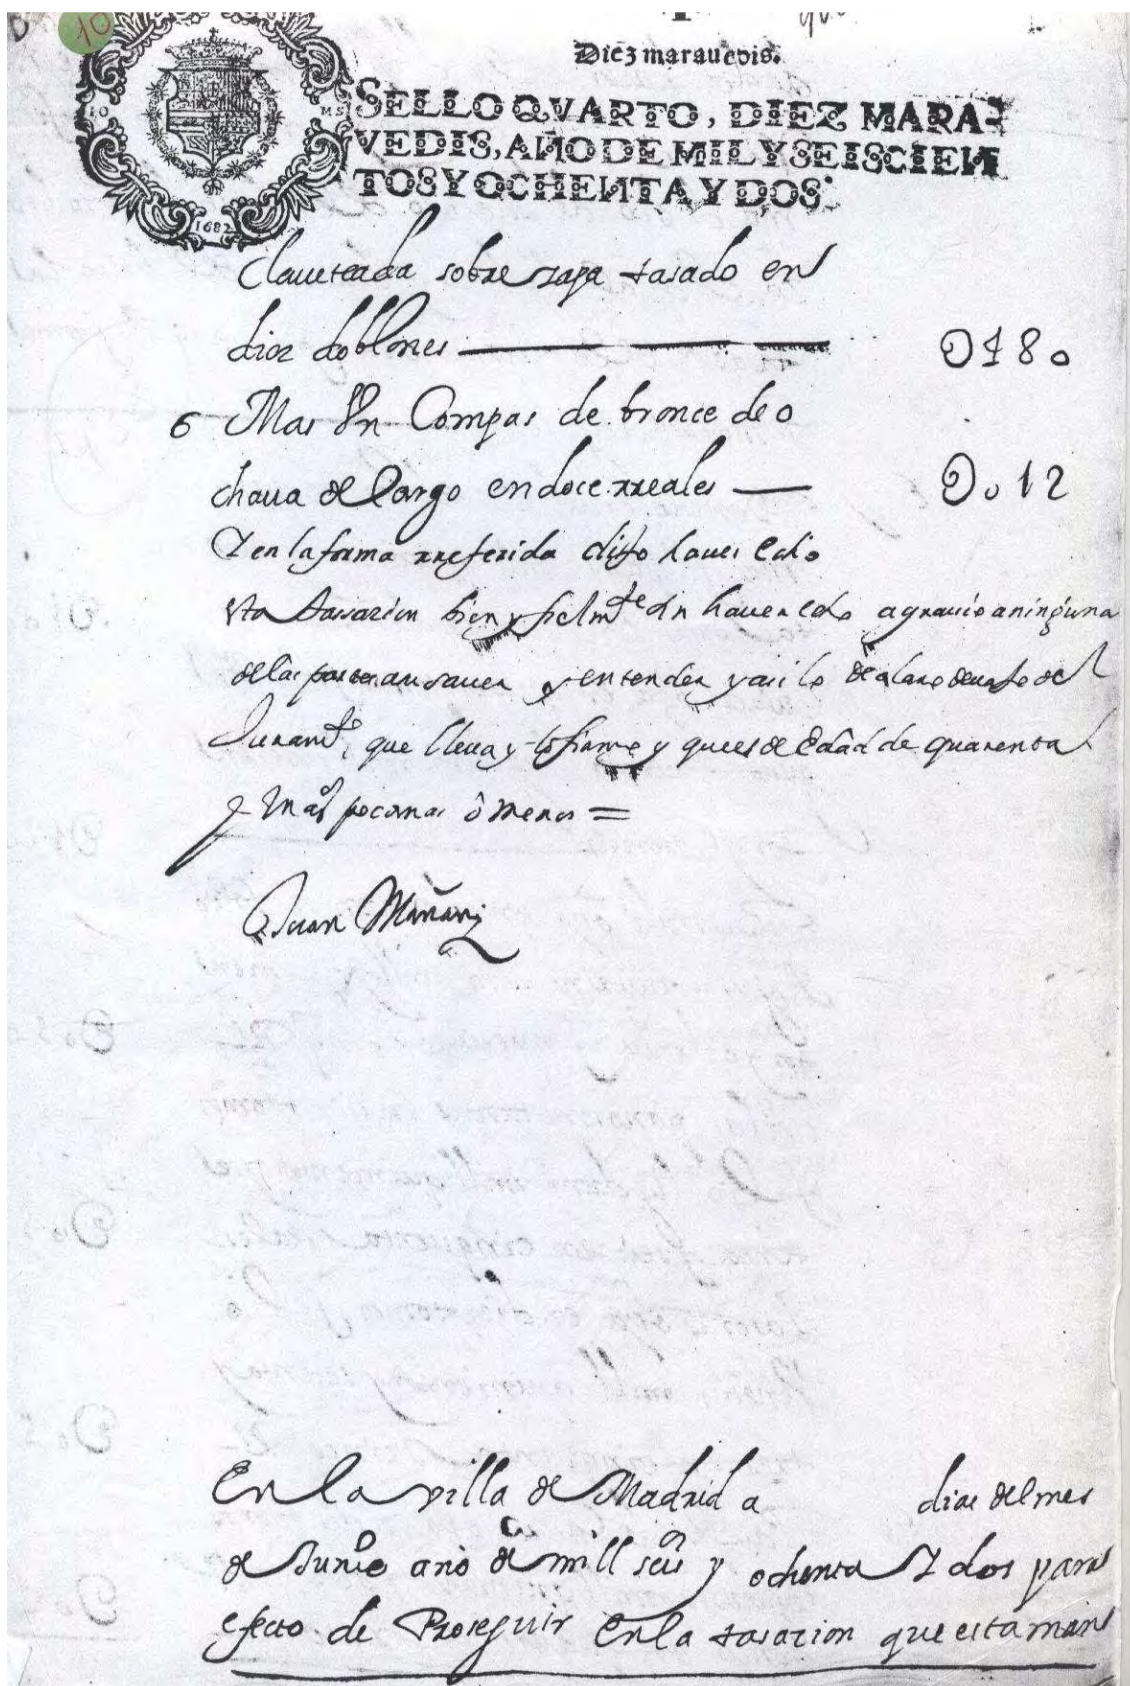 10
Diez marauedis.
SELLO QVARTO, DIEZ MARA-
VEDIS, AÑO DE MIL Y SEISCIEN
TOS Y OCHENTA Y DOS.
1682
Claueteada sobre zapa tasado en
diez doblones — 0480
6 Mas Vn Compas de bronce de o
chaua de largo en doce rreales — 0012
Y en la forma rreferida dijo hauer echo
esta tassacion bien y fielmte sin hauer echo agrauio a ninguna
de las partes a su sauer y entender y asi lo declaro deuajo del
Juramto que lleua y lo firme y que es de edad de quarenta
y mas poco mas ô menos =
Juan
En la villa de Madrid a dias del mes
de Junio año de mill scis y ochenta Y dos para
efecto de Proseguir En la tasacion que esta man